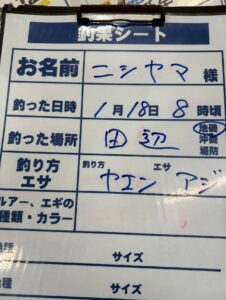 釣果シート
お名前 ニシヤマ 様
釣った日時 1月18日 8時頃
釣った場所 田辺 地磯 沖磯 堤防
釣り方 エサ 釣り方 ヤエン エサ アジ
ルアー、エギの種類・カラー
サイズ
サイズ